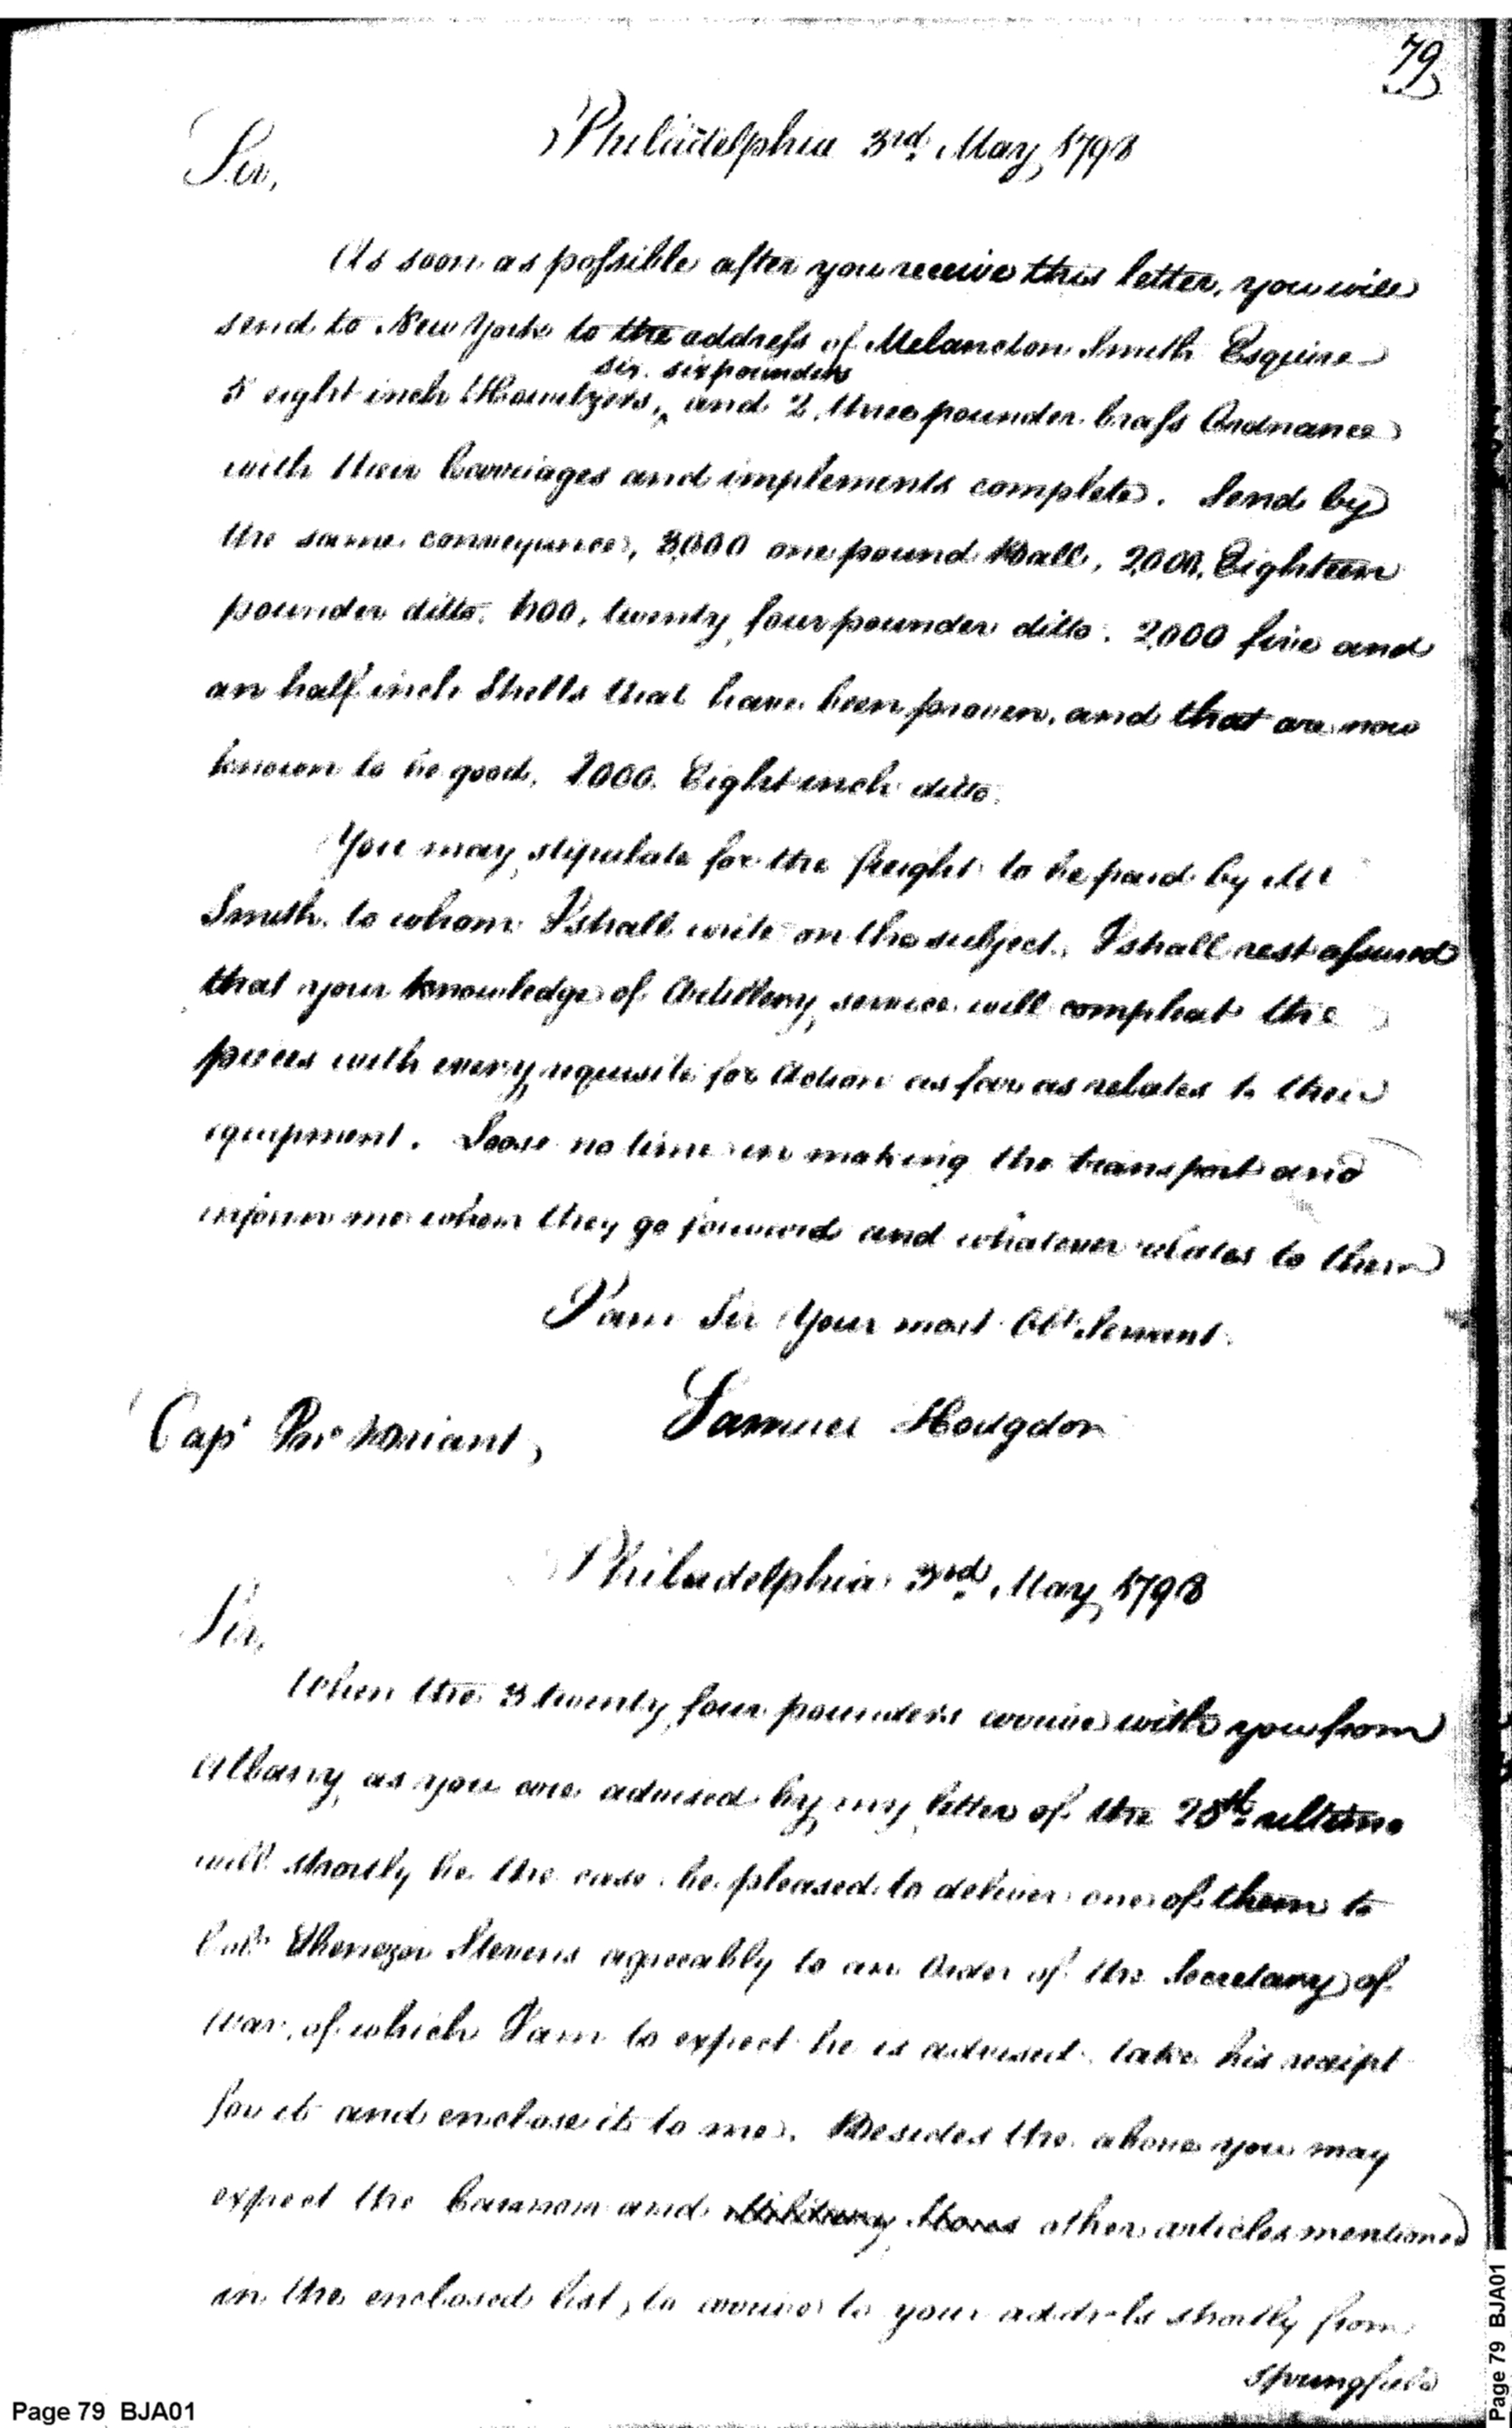 79
Philadelphia 3rd. May, 1798
Sir,
As soon as possible after you receive this letter, you will
send to New York to the address of Melancton Smith Esquire
six. sixpounders
5 eight inch Howitzers, ^ and 2, three pounder brass Ordnance
with their Carriages and implements complete. Send by
the same conveyance, 3,000 one pound Ball, 2,000, Eighteen
pounder ditto. 400, twenty four pounder ditto. 2,000 five and
an half inch Shells that have been proven, and that are now
known to be good, 2000. Eight inch ditto.
You may stipulate for the freight to be paid by Mr
Smith. to whom I shall write on the subject. I shall rest assured
that your knowledge of Artillery service will compleat the
pieces with every requisite for Action as far as relates to their
equipment. Loose no time in making the transport and
inform me when they go forward and whatever relates to them
I am Sir Your most Obt. Servant.
Samuel Hodgdon
Capt
Philadelphia 3rd. May, 1798
Sir,
When the 3 twenty four pounders arrive with you from
Albany, as you are advised by my letter of the 28th. ultimo
will shortly be the case. be pleased to deliver one of them to
Colo. Ebenezer Stevens agreeably to an Order of the Secretary of
War, of which I am to expect he is advised. take his receipt
for it and enclose it to me. Besides the above you may
expect the Cannon and Military Stores other articles mentioned
in the enclosed list, to arrive to your address shortly from
Springfield
Page 79 BJA01
Page 79 BJA01